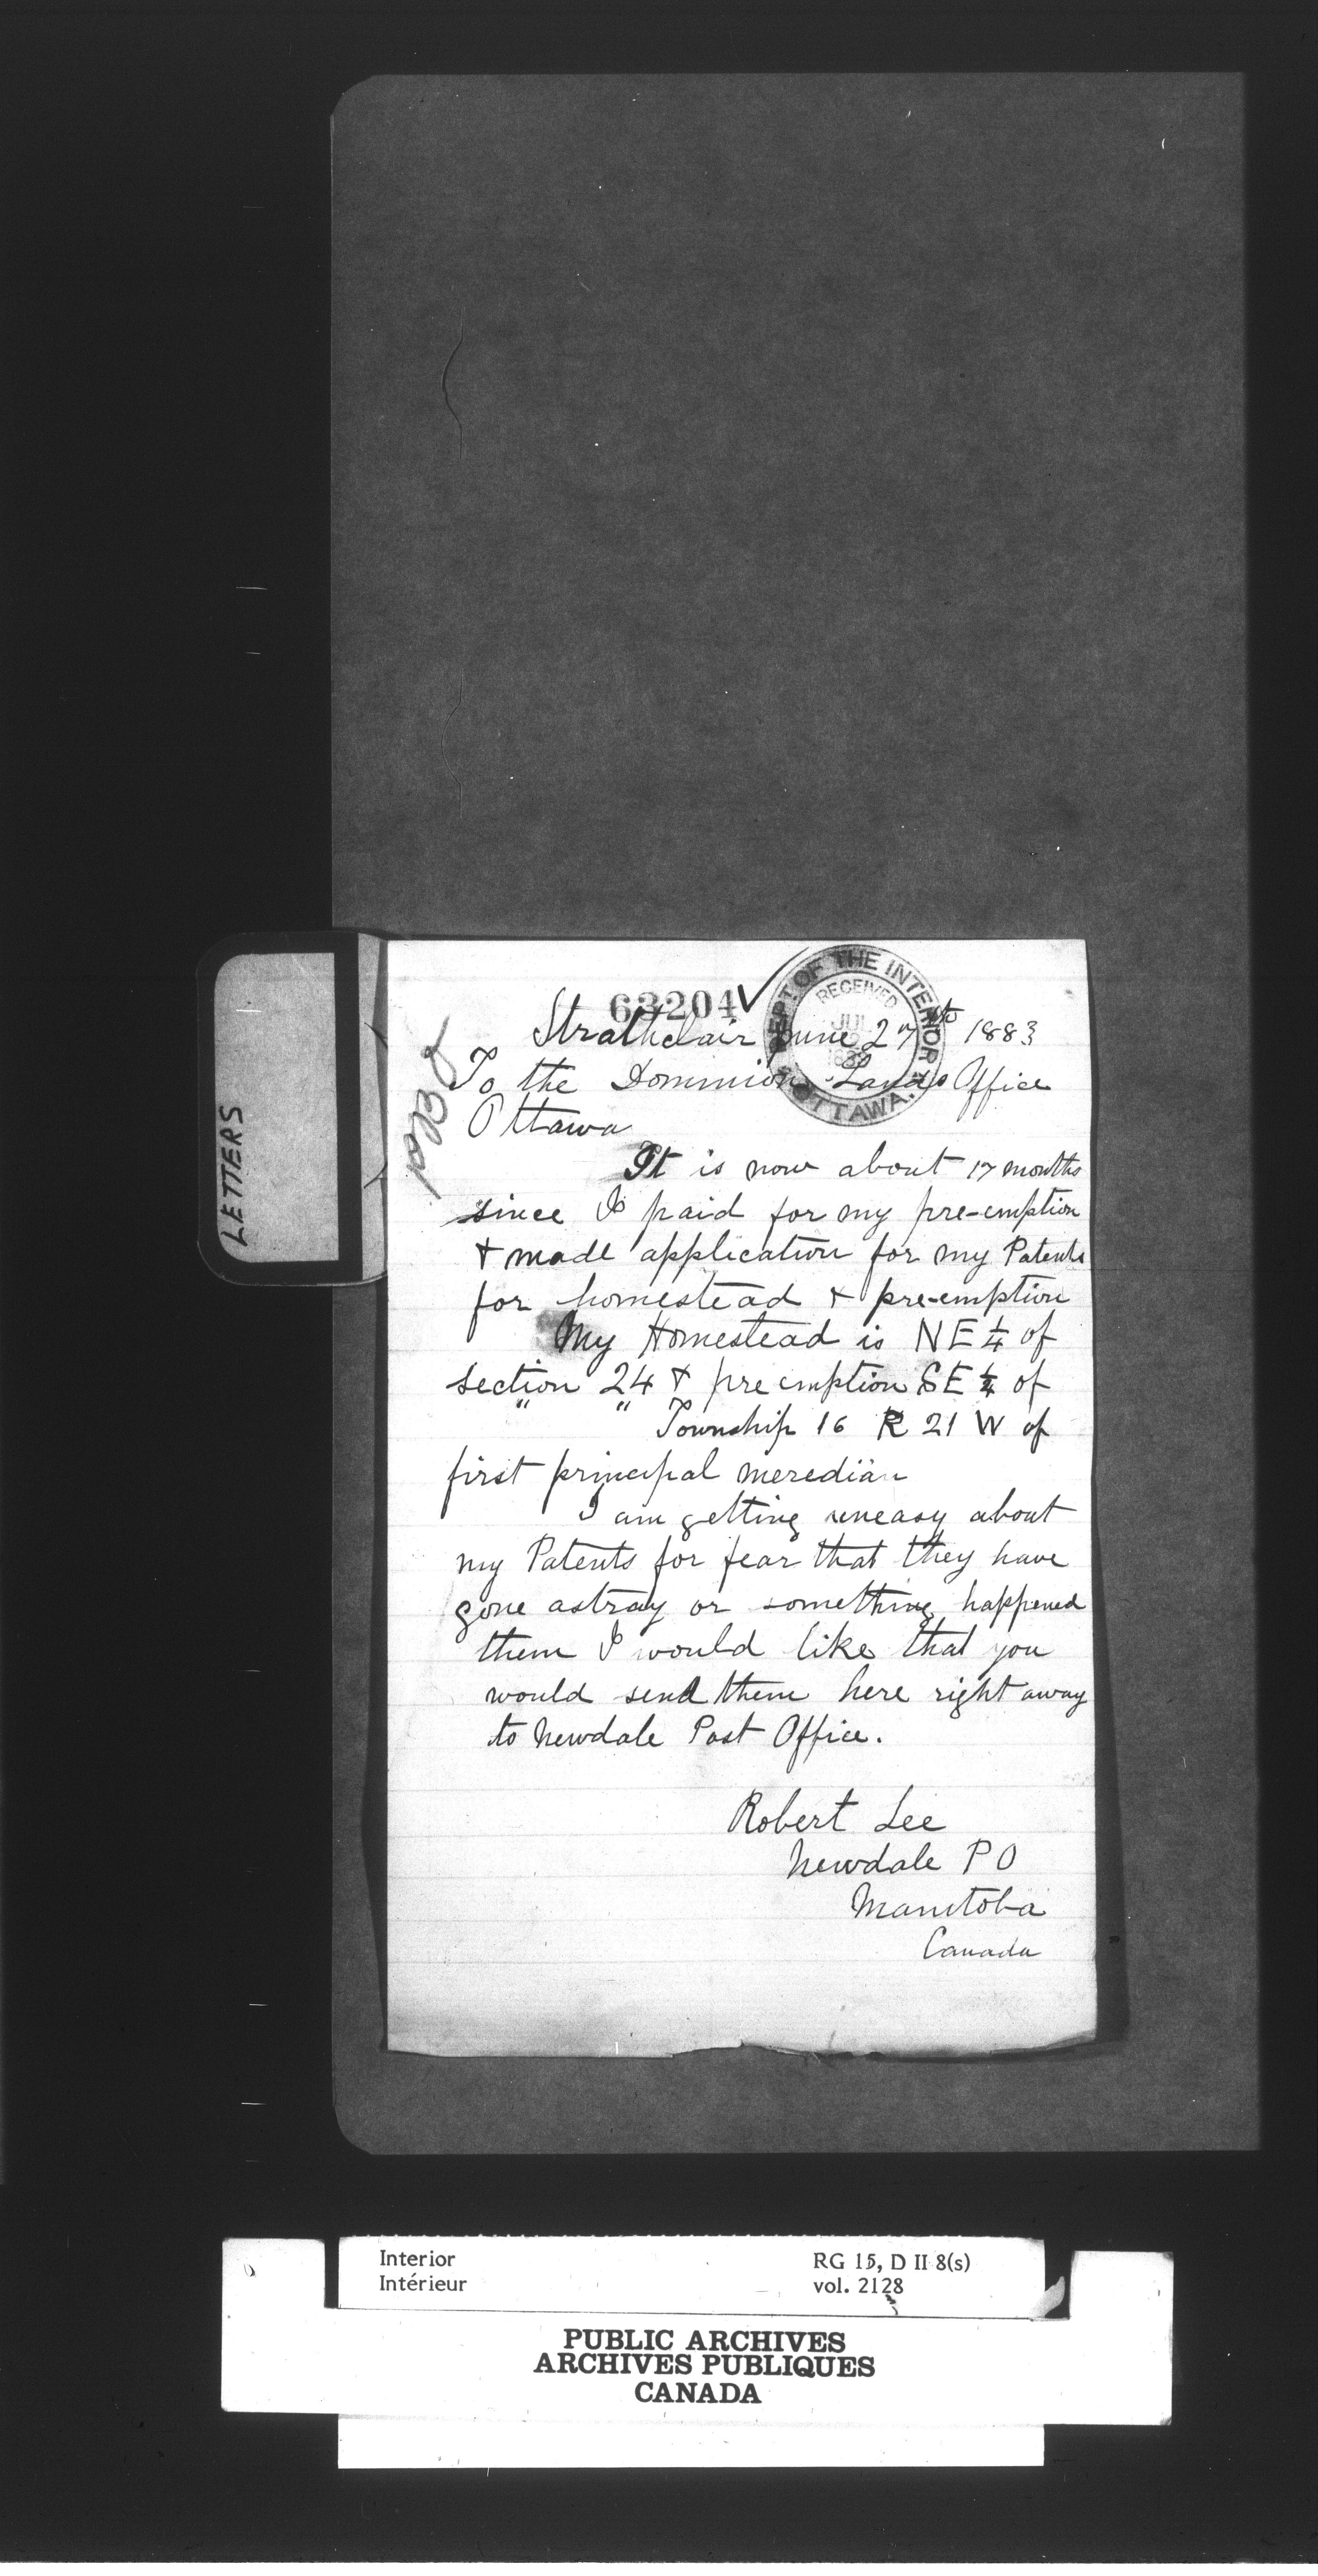 63204
DEPT. OF THE INTERIOR
RECEIVED
OTTAWA.
Strathclair June 27th 1883
To the Dominion Lands Office
Ottawa
It is now about 17 months
since I paid for my pre-emption
& made application for my Patents
for homestead & pre-emption
My Homestead is NE ¼ of
section 24 & pre emption SE ¼ of
" " Township 16 R 21 W of
first principal meredian
I am getting uneasy about
my Patents for fear that they have
gone astray or something happened
them I would like that you
would send them here right away
to Newdale Post Office.
Robert Lee
Newdale P O
Manitoba
Canada
LETTERS
Interior
Intérieur
RG 15, D II 8(s)
vol. 2128
PUBLIC ARCHIVES
ARCHIVES PUBLIQUES
CANADA